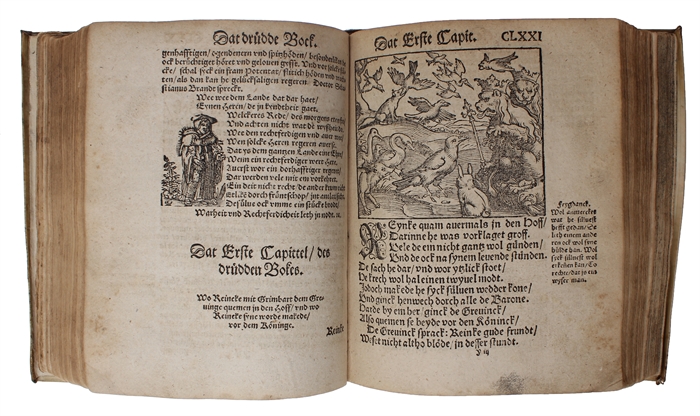 Dat drüdde Bock.
genhafftigen / ogendenern vnd spitzhöden / besonderliken
ock berüchtiger höret vnd gelouen gyfft. Vnd vor sölcke
cke / schal syck ein fram Potentat / flitich höden vnd
ten / als dan kan he gelücksaligen regeren. Doctor Sebas
stianus Brandt spreckt.
Wee wee dem Lande dat dar haet /
Eynen Heren / de jn kindtheit gaet.
Welckeres Rede / des morgens
Vnd achten nicht wat de wyßheit
Wee den rechtferdigen vnd
Wen sölcke Heren regeren
Dat ys dem gantzen Lande eine Ehre /
Wenn ein rechtferdiger wert Here.
Auerst wor ein dorhafftiger regeret /
Dar werden vele mit em vorföret.
Ein deit nicht recht de ander
dorch fründtschop / jm
Des sülue ock vmme ein stücke brodt /
Warheit vnd Rechtferdicheit leth jn nodt.
Dat Erste Capittel / des
drüdden Bokes.
Wo Reineke mit Grimbart dem Gre-
uinge quemen in den Hoff / vnd wo
Reineke syne worde makede /
vor dem Köninge.
Reinke
Dat Erste Capit.
CLXXI
REynke quam auermals in den Hoff /
Darinne he was vorklaget groff.
Vele de em nicht gantz wol günden /
Vnd de ock na synem leuende stünden.
De sach he dar / vnd wor ytzlick stoet /
He krech wol hal einen twyuel modt.
Jodoch makede he syck sülven wedder köne /
Vnd ginck henwech dorch alle de Barone.
Harde by em her ginck de Greuinck /
Also quemen se beyde vor den Köninck /
De Greuinck sprack: Reinke gude frundt /
Weset nicht altho blöde / in desser stundt.
Wol anmercket
wat he süluest
hefft gedan / Se
lick einem ande
ren ock wol syne
hüde dan. Wol
syck süluest wol
erkenen kan / Is
rechte / dat is ein
wyser man.